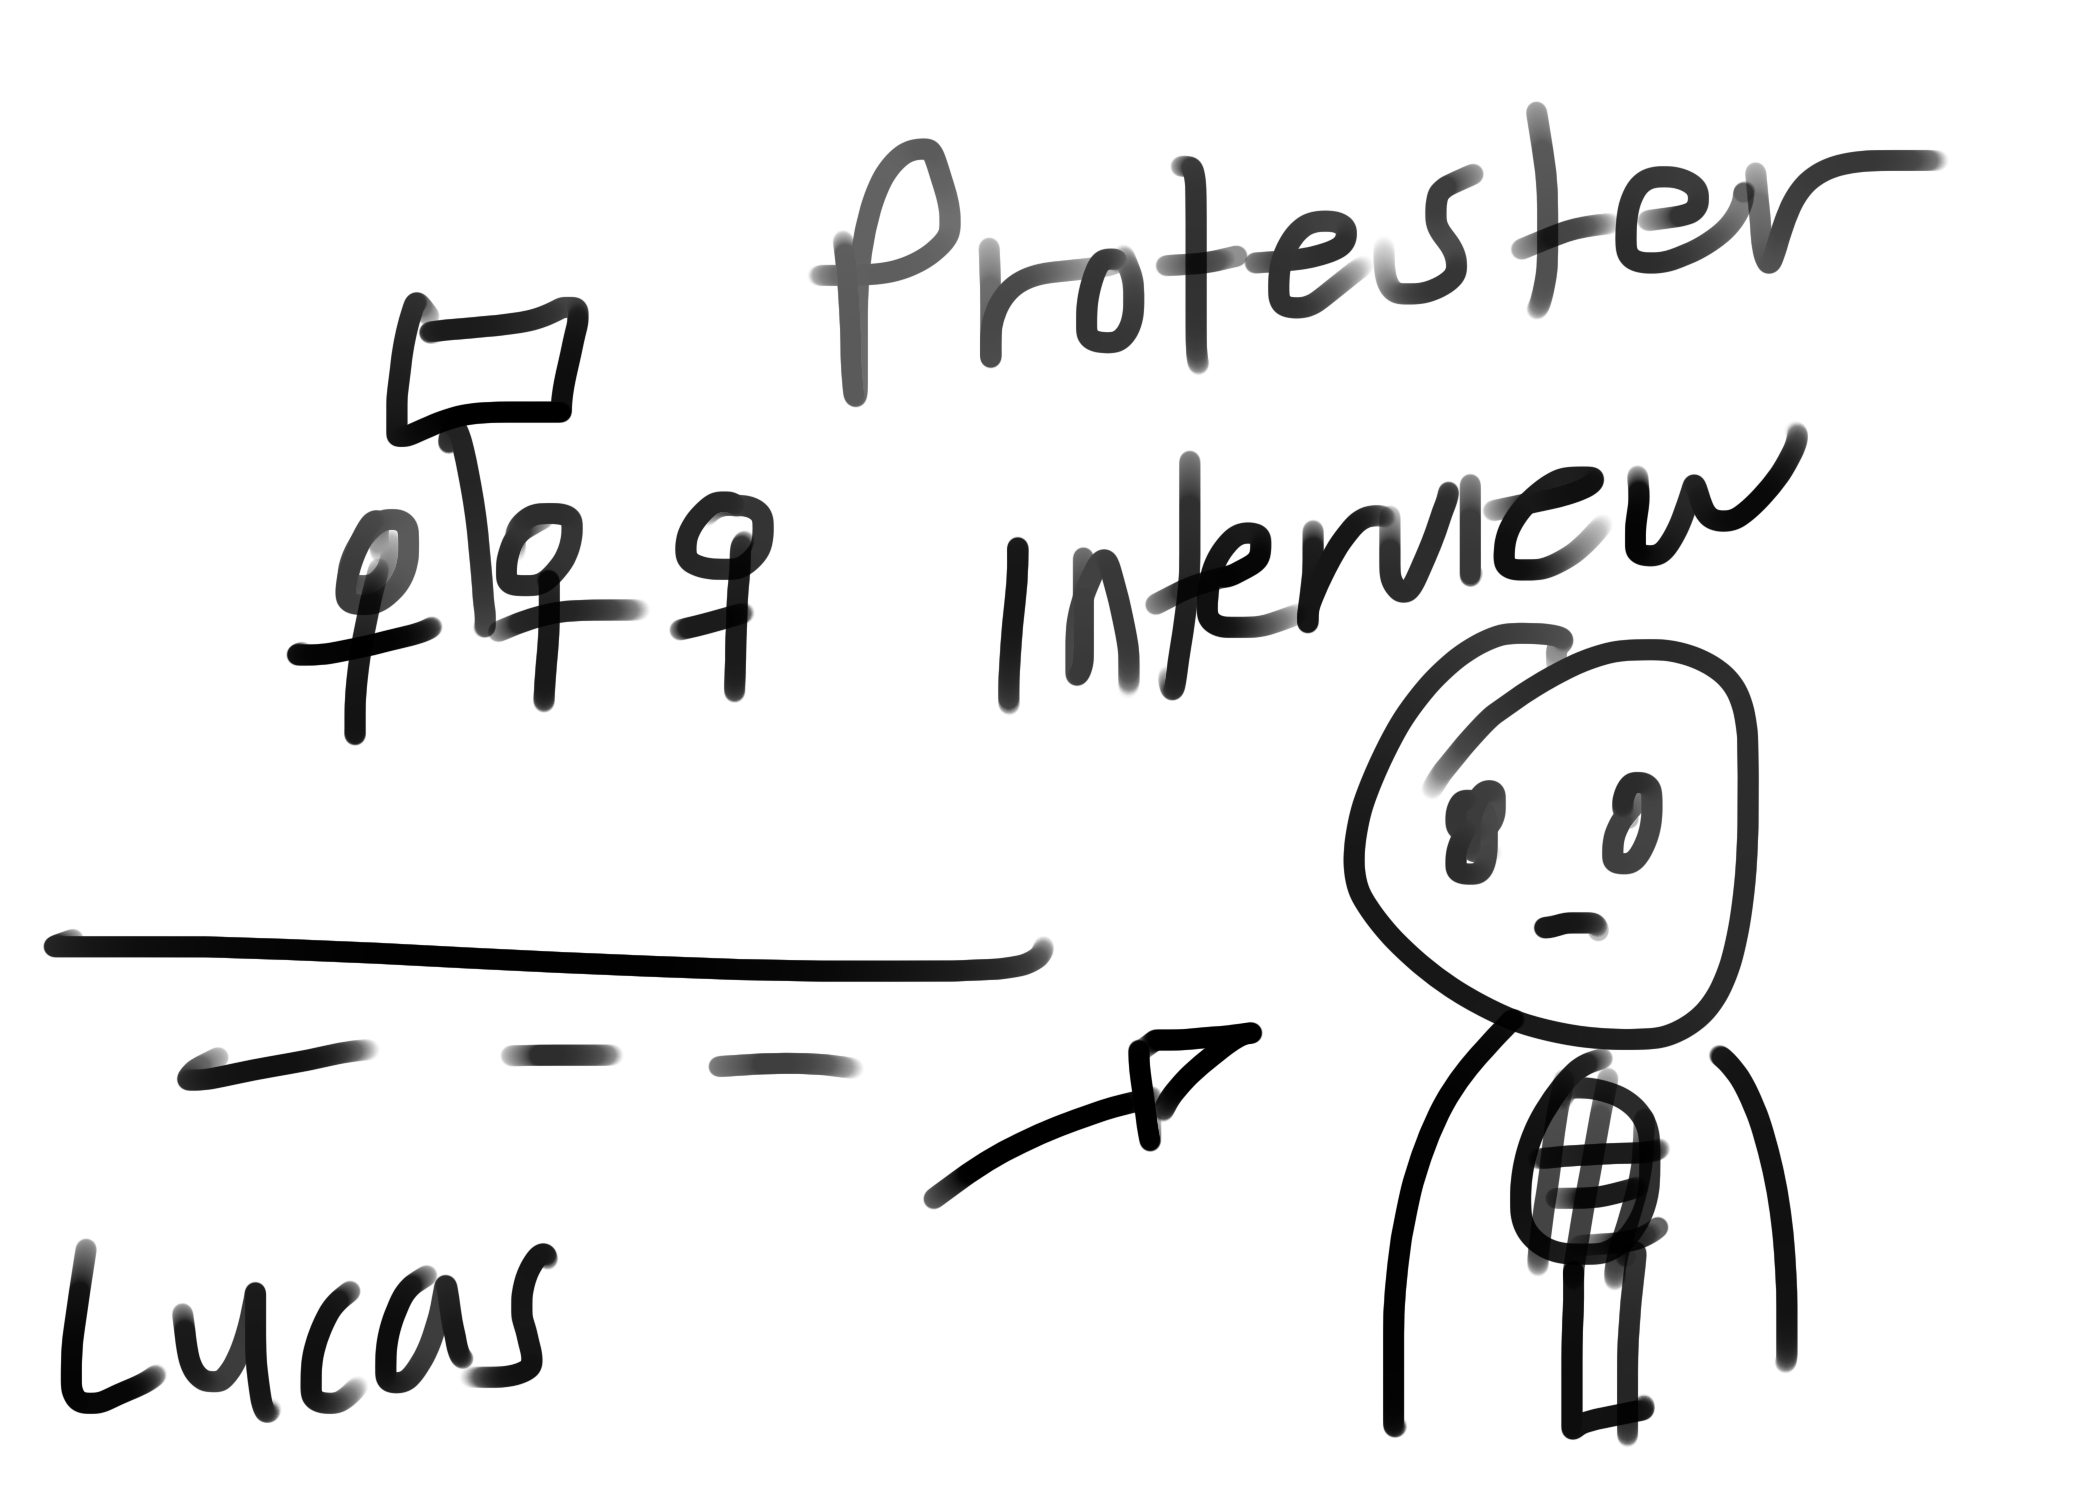 Protester
Interview
Lucas